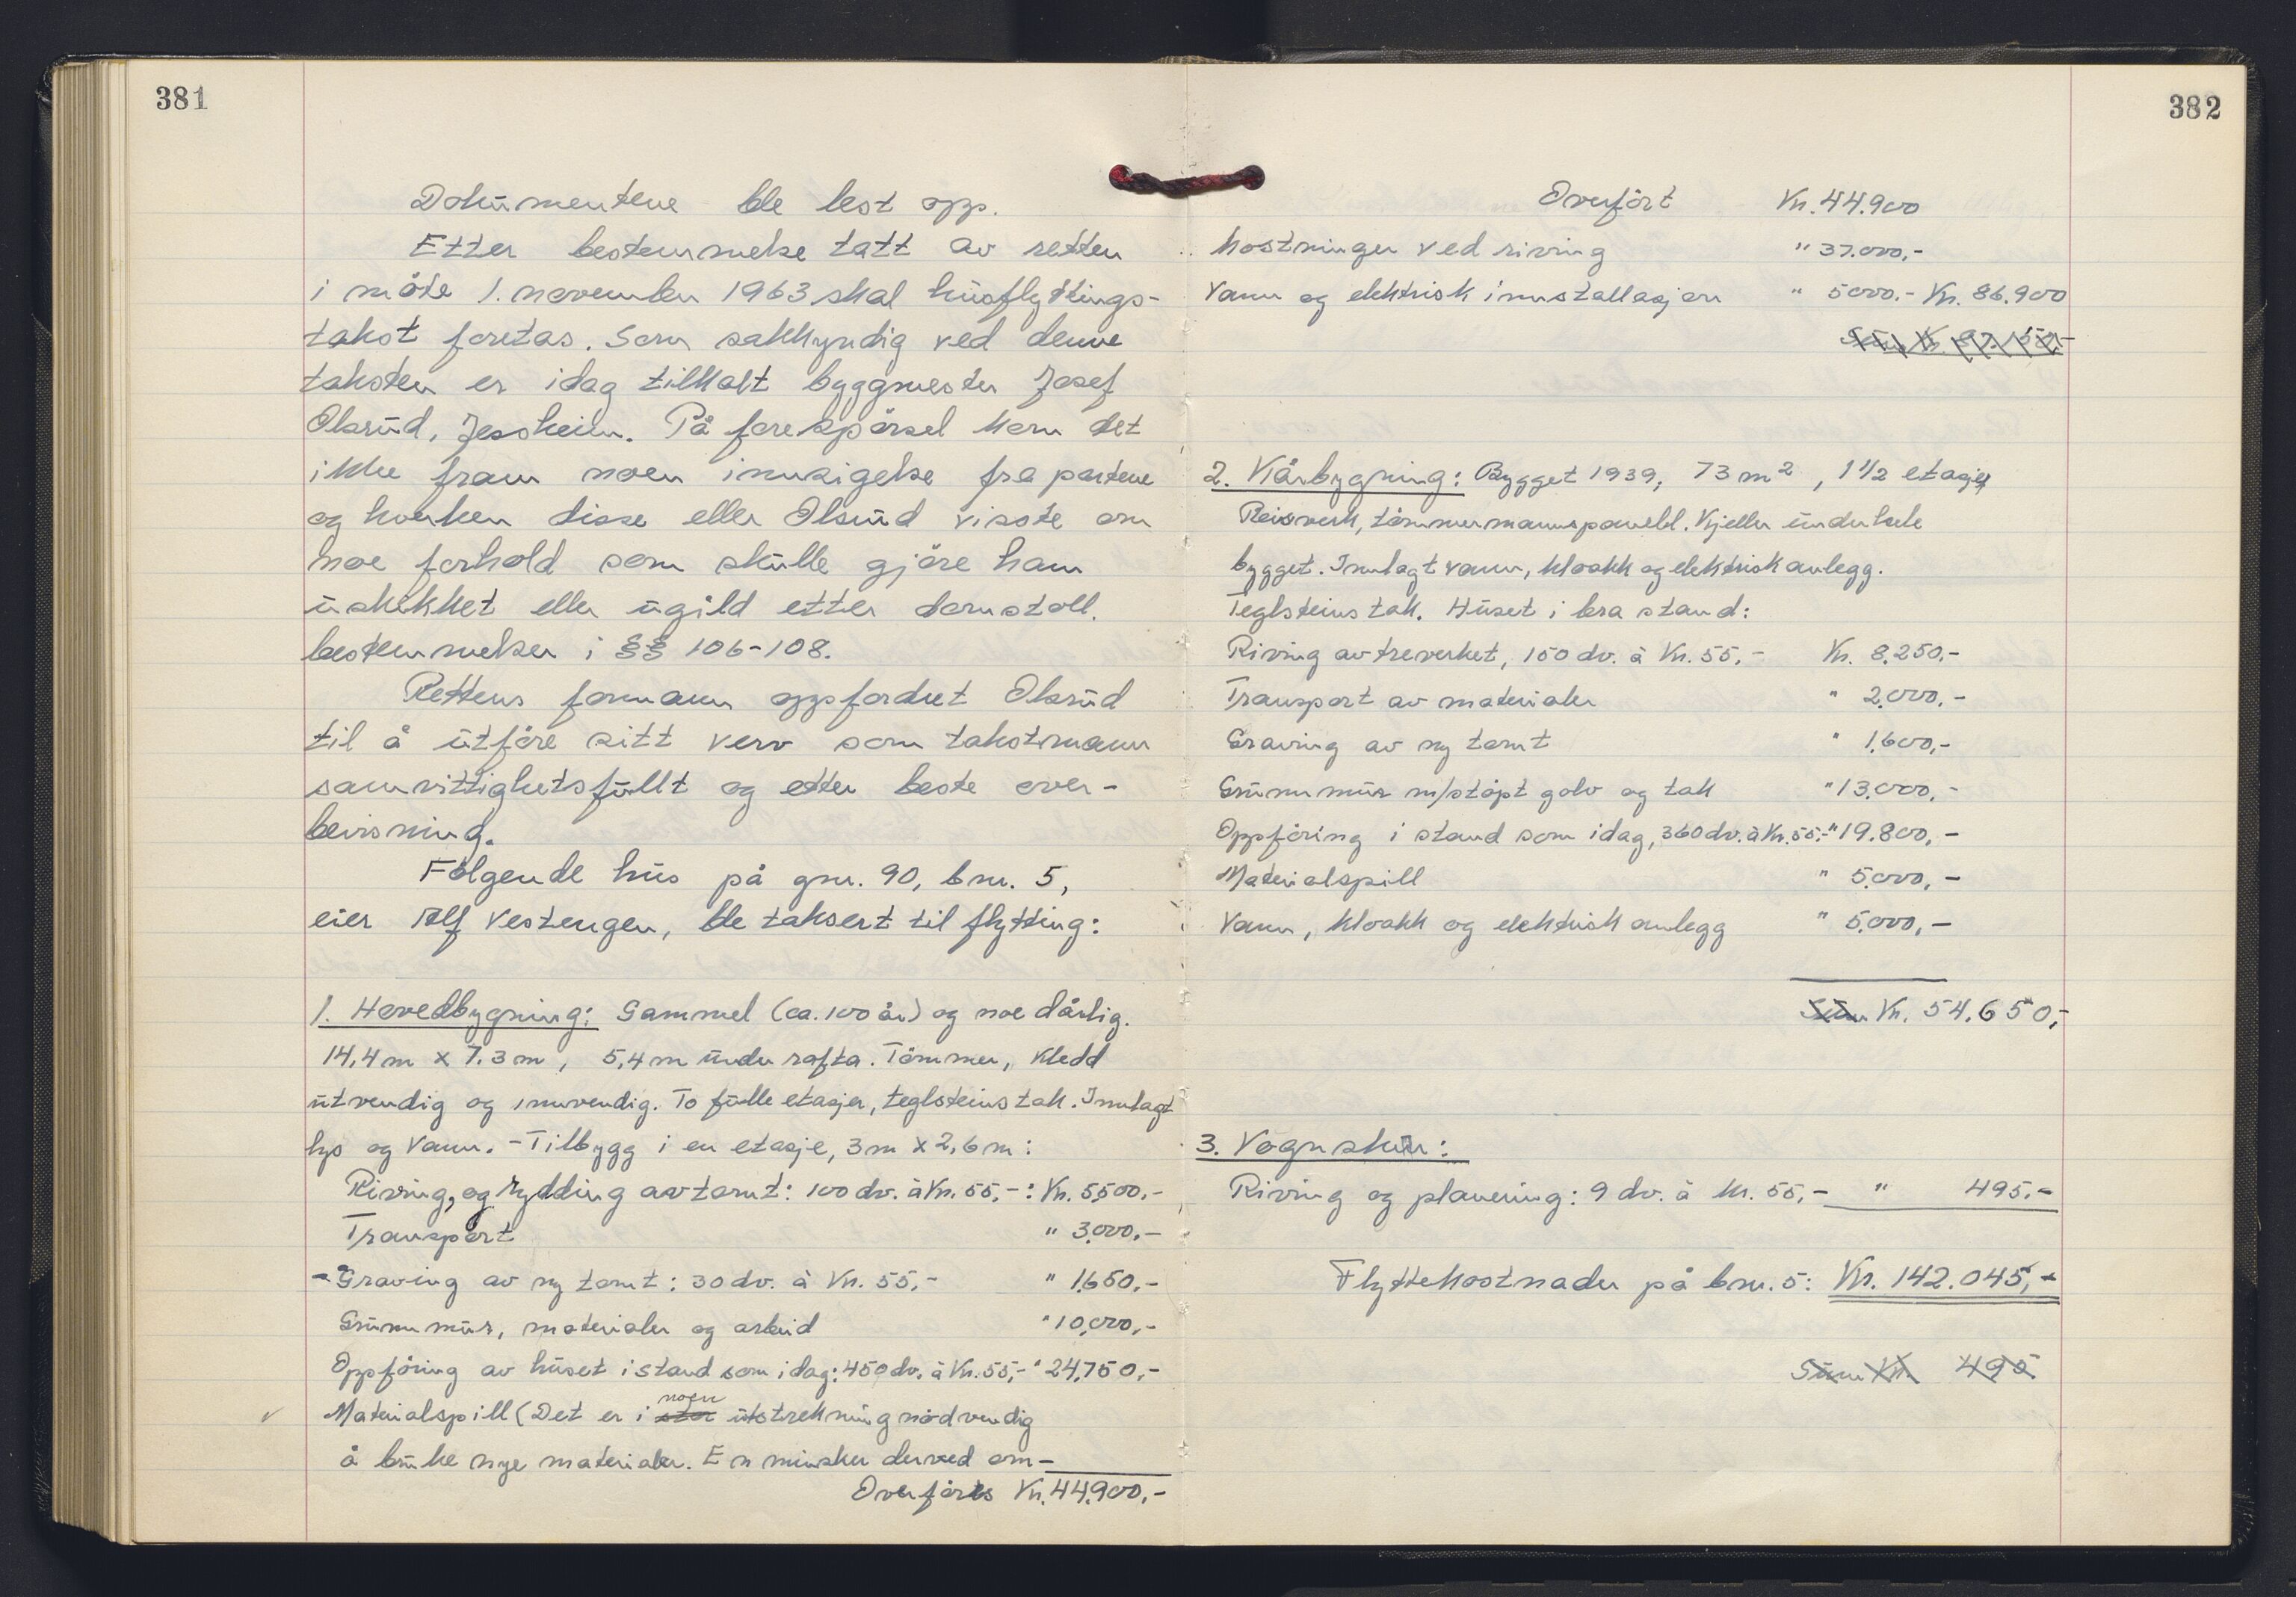 381
Dokumentene ble lest opp.
Etter bestemmelse tatt av retten
i møte 1. november 1963 skal husflyttings-
takst foretas. Som sakkyndig ved denne
taksten er idag tilkalt byggmester Josef
Olsrud, Jessheim. På forespørsel kom det
ikke fram noen innsigelse fra partene
og hverken disse eller Olsrud visste om
noe forhold som skulle gjøre ham
uskikket eller ugild etter domstoll.
bestemmelser i §§ 106-108.
Rettens formann oppfordret Olsrud
til å utføre sitt verv som takstmann
samvittighetsfullt og etter beste over-
bevisning.
Følgende hus på gnr. 90, bnr. 5,
eier Alf Vestengen, ble taksert til flytting:
1. Hovedbygning: Gammel (ca. 100 år) og noe dårlig.
14,4 m x 7.3 m, 5,4 m under rafta. Tømmer, kledd
utvendig og innvendig. To fulle etasjer, teglsteinstak. Innlagt
lys og vann. - Tilbygg i en etasje, 3 m x 2,6 m:
Riving, og rydding av tomt: 100 dv. à Kr. 55,-: Kr. 5,500,-
Transport " 3.000,-
- Graving av ny tomt: 30 dv. à Kr. 55,- " 1.650,-
Grunnmur, materialer og arbeid " 10.000,-
Oppføring av huset i stand som idag: 450 dv. à Kr. 55,- " 24,750,-
Materialspill (Det er i stor noen utstrekning nødvendig
å bruke nye materialer. En minsker derved om-
Overføres Kr. 44.900,-
382
Overført Kr. 44.900
kostninger ved riving " 37.000,-
Vann og elektrisk innstallasjon " 5000.- Kr. 86.900
2. Kårbygning: Bygget 1939, 73 m², 1 1/2 etasje
Reisverk, tømmermannspanell. Kjeller under hele
bygget. Innlagt vann, kloakk og elektrisk anlegg.
Teglsteinstak. Huset i bra stand:
Riving av treverket, 150 dv. à Kr. 55,- Kr. 8.250,-
Transport av materialer " 2.000,-
Graving av ny tomt " 1.600,-
Grunnmur m/støpt golv og tak " 13.000,-
Oppføring i stand som idag, 360 dv. à Kr. 55.- " 19.800,-
Materialspill " 5.000,-
Vann, kloakk og elektrisk anlegg " 5.000,-
Sum Kr. 54.650,-
3. Vognskur:
Riving og planering: 9 dv. à kr. 55,- " 495,-
Flyttekostnader på bnr. 5: Kr. 142.045,-
Sum Kr. 495